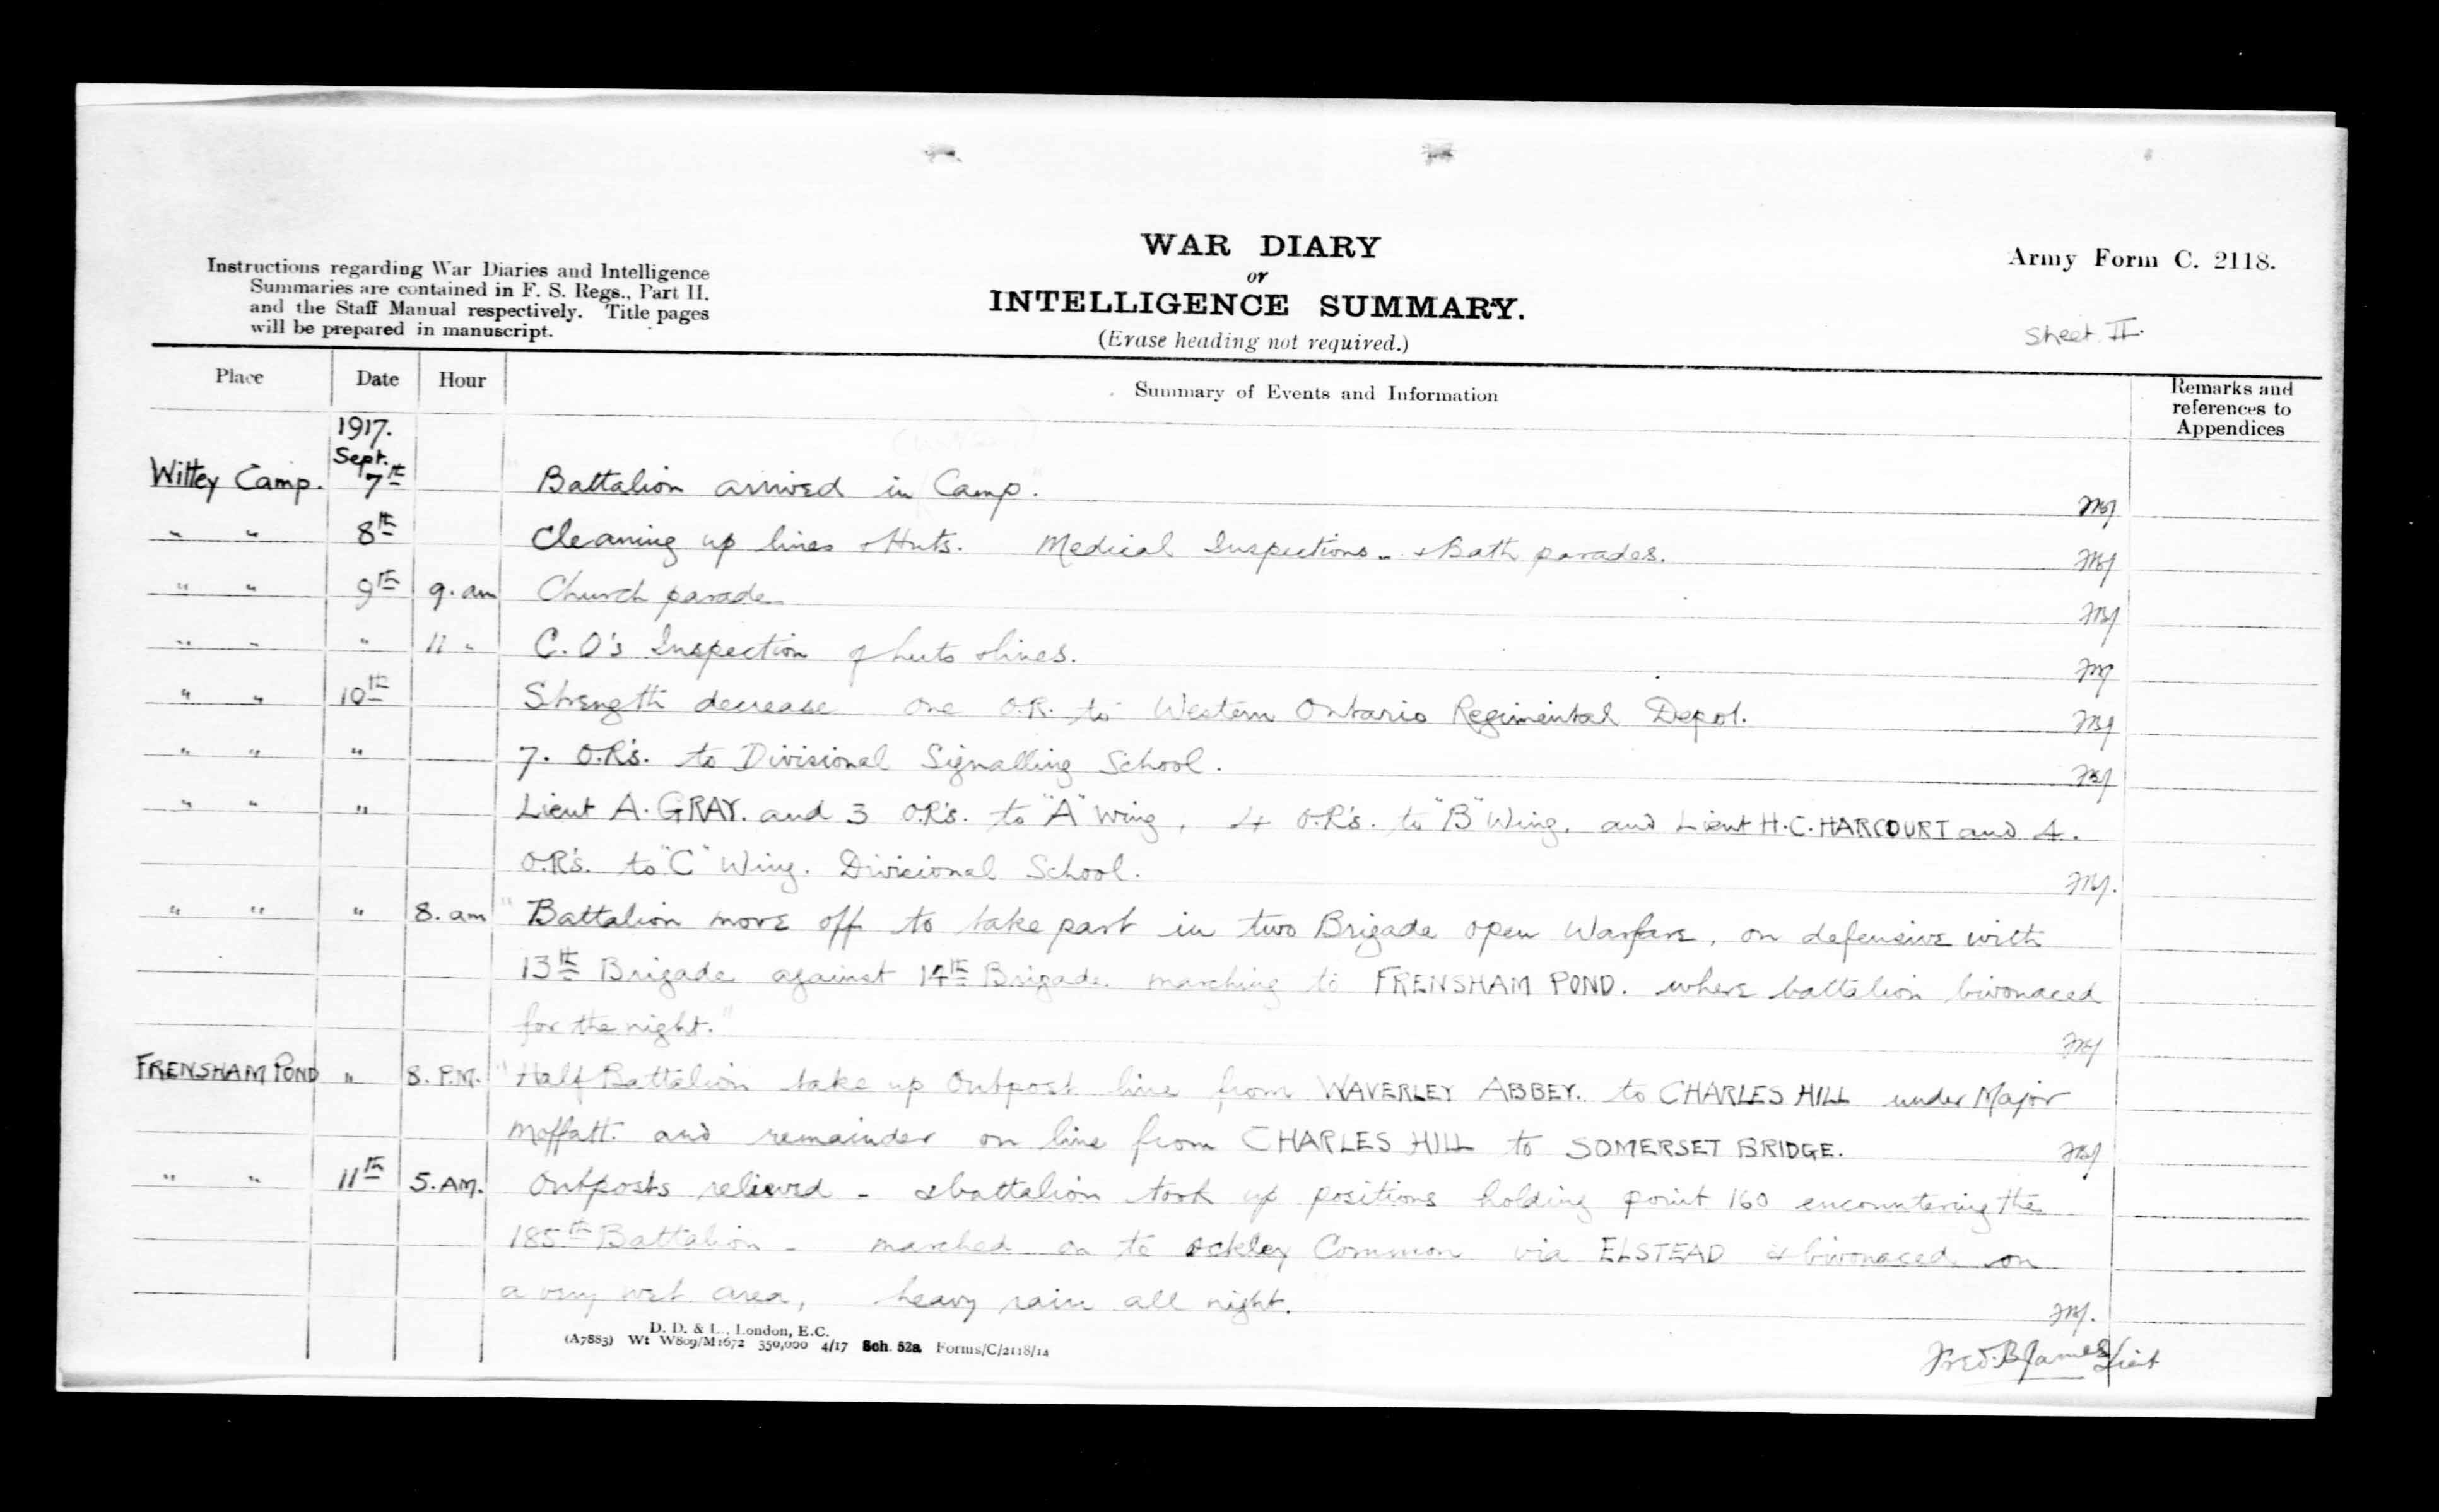 WAR DIARY
or
INTELLIGENCE SUMMARY.
(Erase heading not required.)
Instructions regarding War Diaries and Intelligence
Summaries are contained in F. S. Regs., Part II.
and the Staff Manual respectively. Title pages
will be prepared in manuscript.
Army Form C. 2118.
Sheet II.
Place Date Hour Summary of Events and Information Remarks and references to Appendices
1917.
Sept.
Witley Camp. 7th Battalion arrived in Camp. FBJ
" " 8th Cleaning up lines & Huts. Medical Inspections - & Bath parades. FBJ
" " 9th 9. am Church parade FBJ
" " " 11 " C.O's Inspection of huts & lines. FBJ
" " 10th Strength decrease one O.R. to Western Ontario Regimental Depot. FBJ
" " " 7. O.R's. to Divisional Signalling School. FBJ
" " " Lieut A. GRAY. and 3 O.R's. to "A" Wing, 4 O.R's. to "B" Wing. and Lieut H.C. HARCOURT and 4.
O.R's. to "C" Wing. Divisional School. FBJ.
" " " 8. am "Battalion move off to take part in two Brigade open Warfare, on defensive with
13th Brigade against 14th Brigade. marching to FRENSHAM POND. where battalion bivouaced
for the night." FBJ
FRENSHAM POND " 8. P.M. "Half Battalion take up Outpost line from WAVERLEY ABBEY. to CHARLES HILL under Major
Moffatt. and remainder on line from CHARLES HILL to SOMERSET BRIDGE. FBJ
" " 11th 5. AM. Outposts relieved - & battalion took up positions holding point 160 encountering the
185th Battalion - marched on to Ockley Common via ELSTEAD & bivouaced on
a very wet area, heavy rain all night. FBJ.
Fred. B James Lieut
D. D. & L., London, E.C.
(A7883) Wt W809/M1672 350,000 4/17 Sch. 52a Forms/C/2118/14